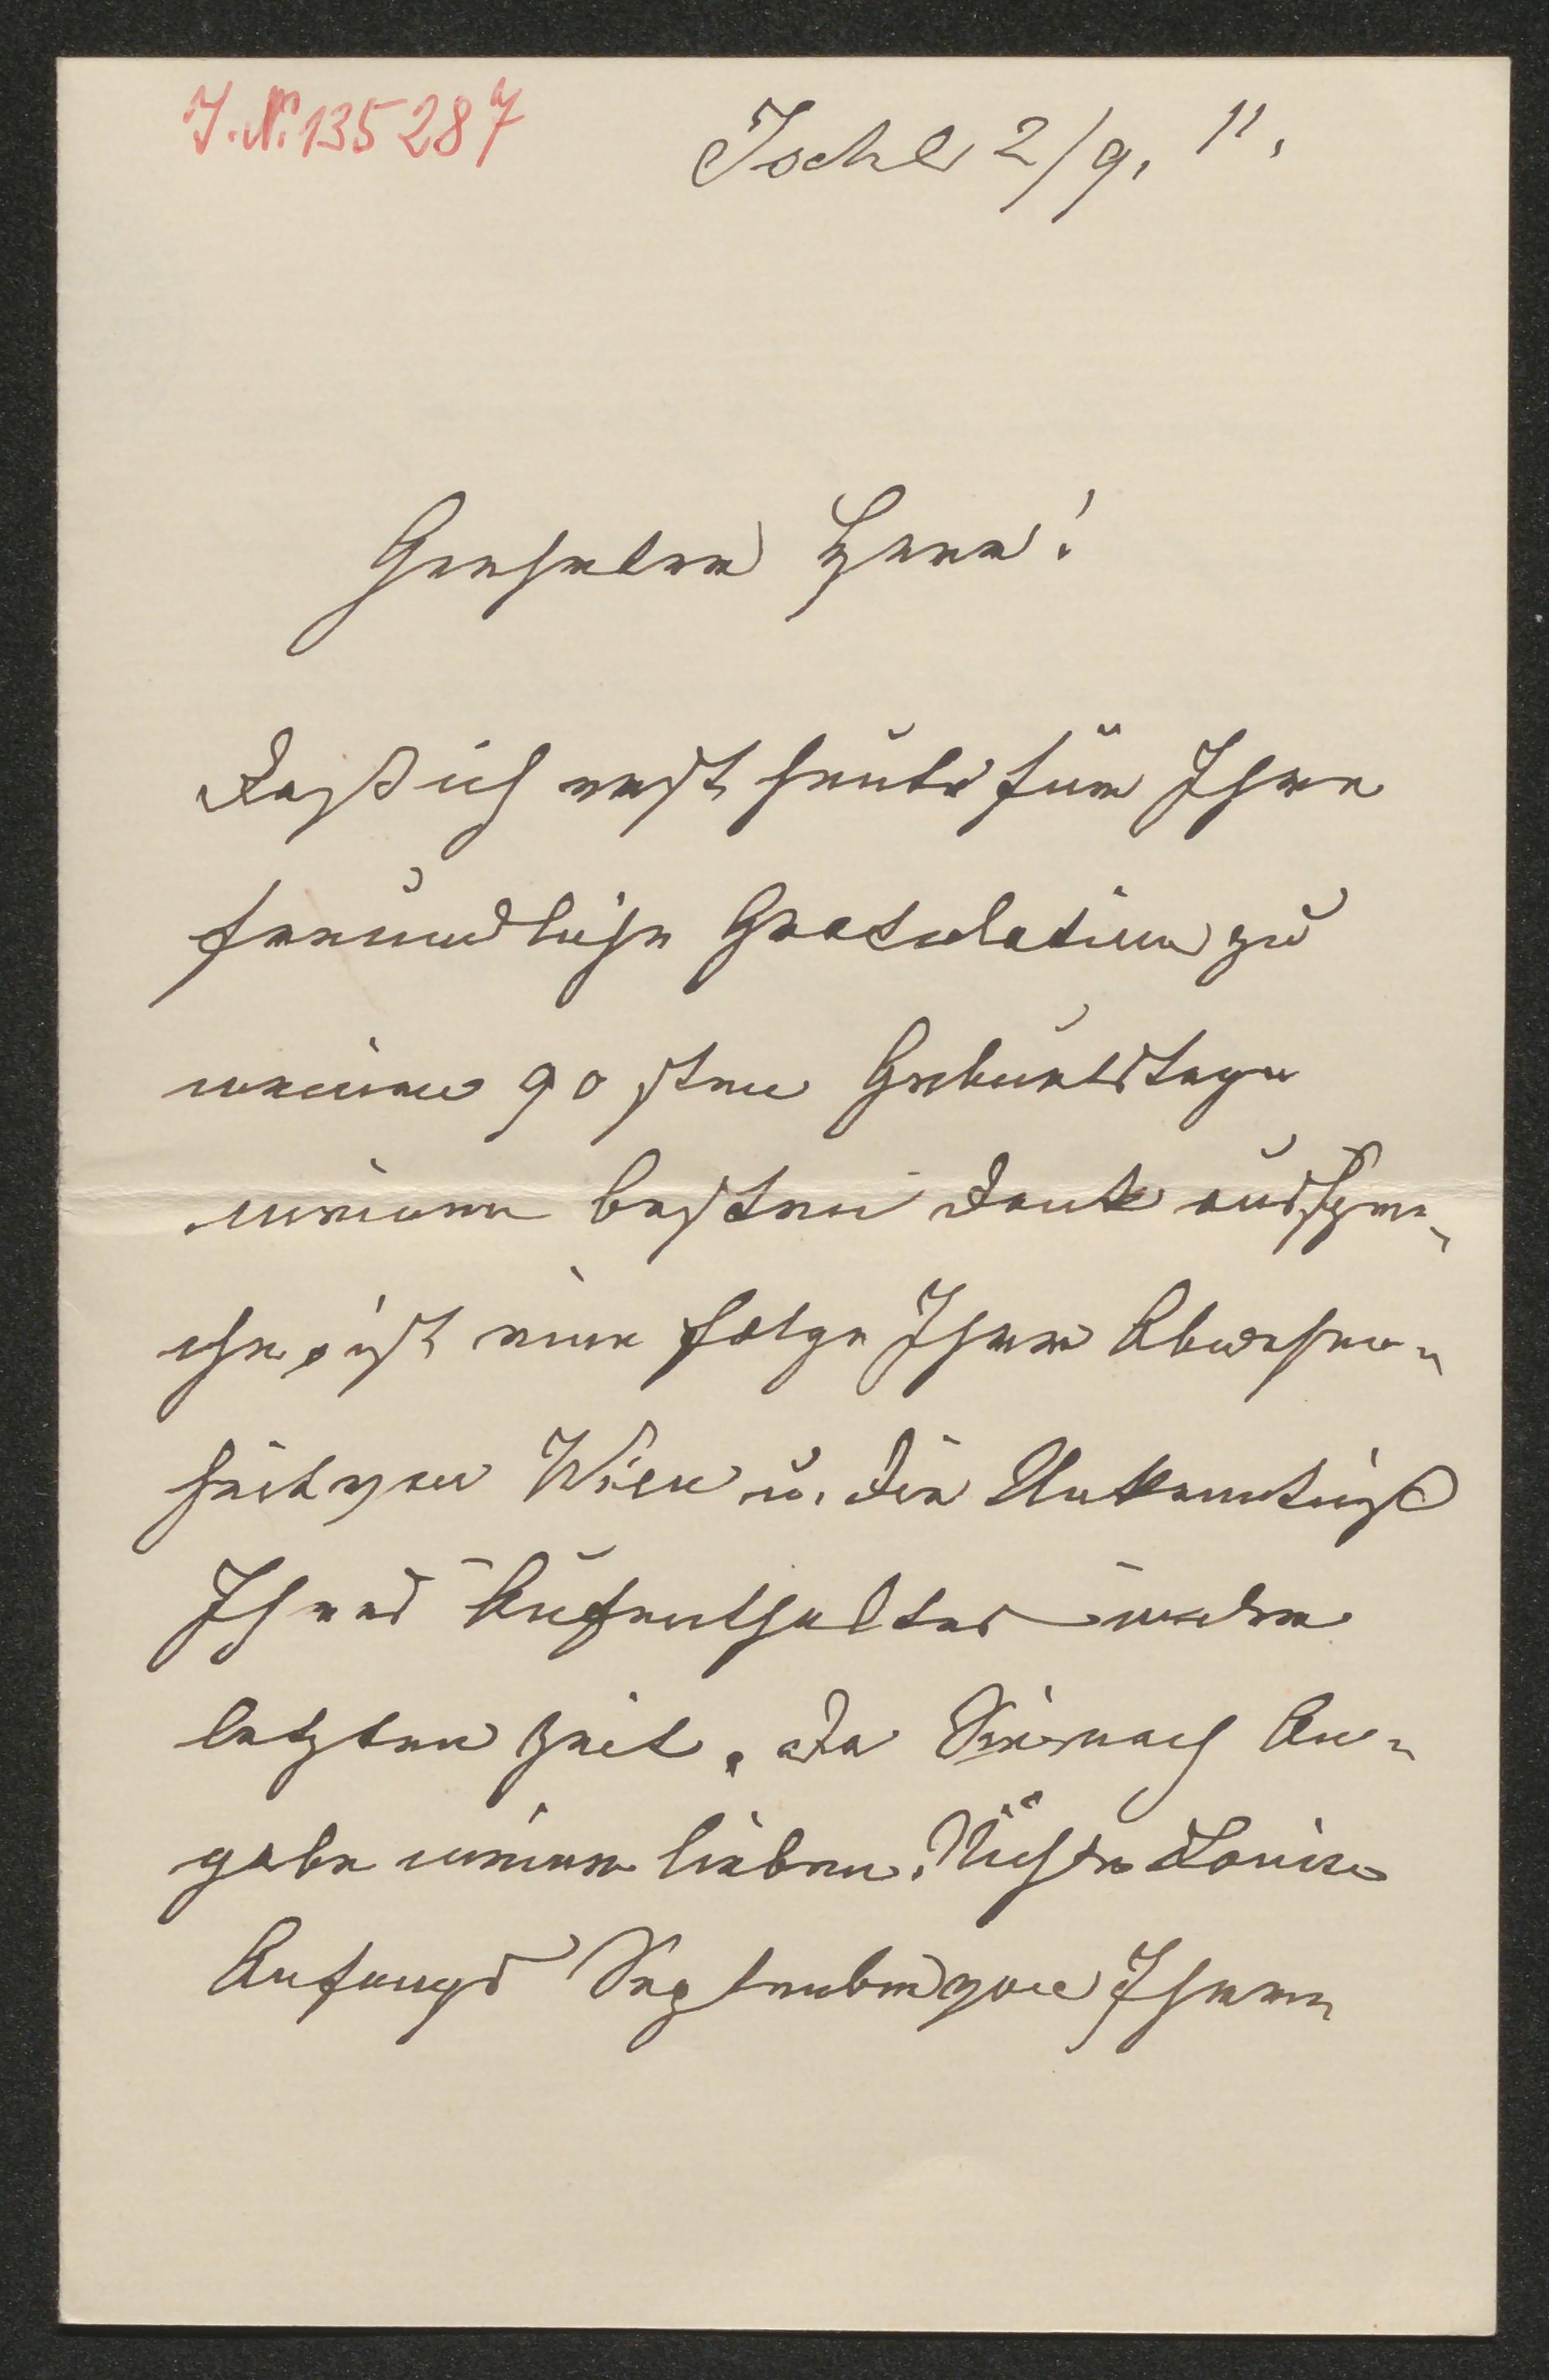 J.N. 135287
Ischl 2/9. 11.
Geehrter Herr!
Daß ich erst heute für Ihre
freundliche Gratulation zu
meinem 90 sten Geburtstage
meinen besten Dank ausspre-
che, ist eine Folge Ihrer Abwesen-
heit von Wien u. die Unkenntniß
Ihres Aufenthaltes in der
letzten Zeit. Da Sie nach An-
gabe meiner lieben Nichte Louise
Anfangs September von Ihrem